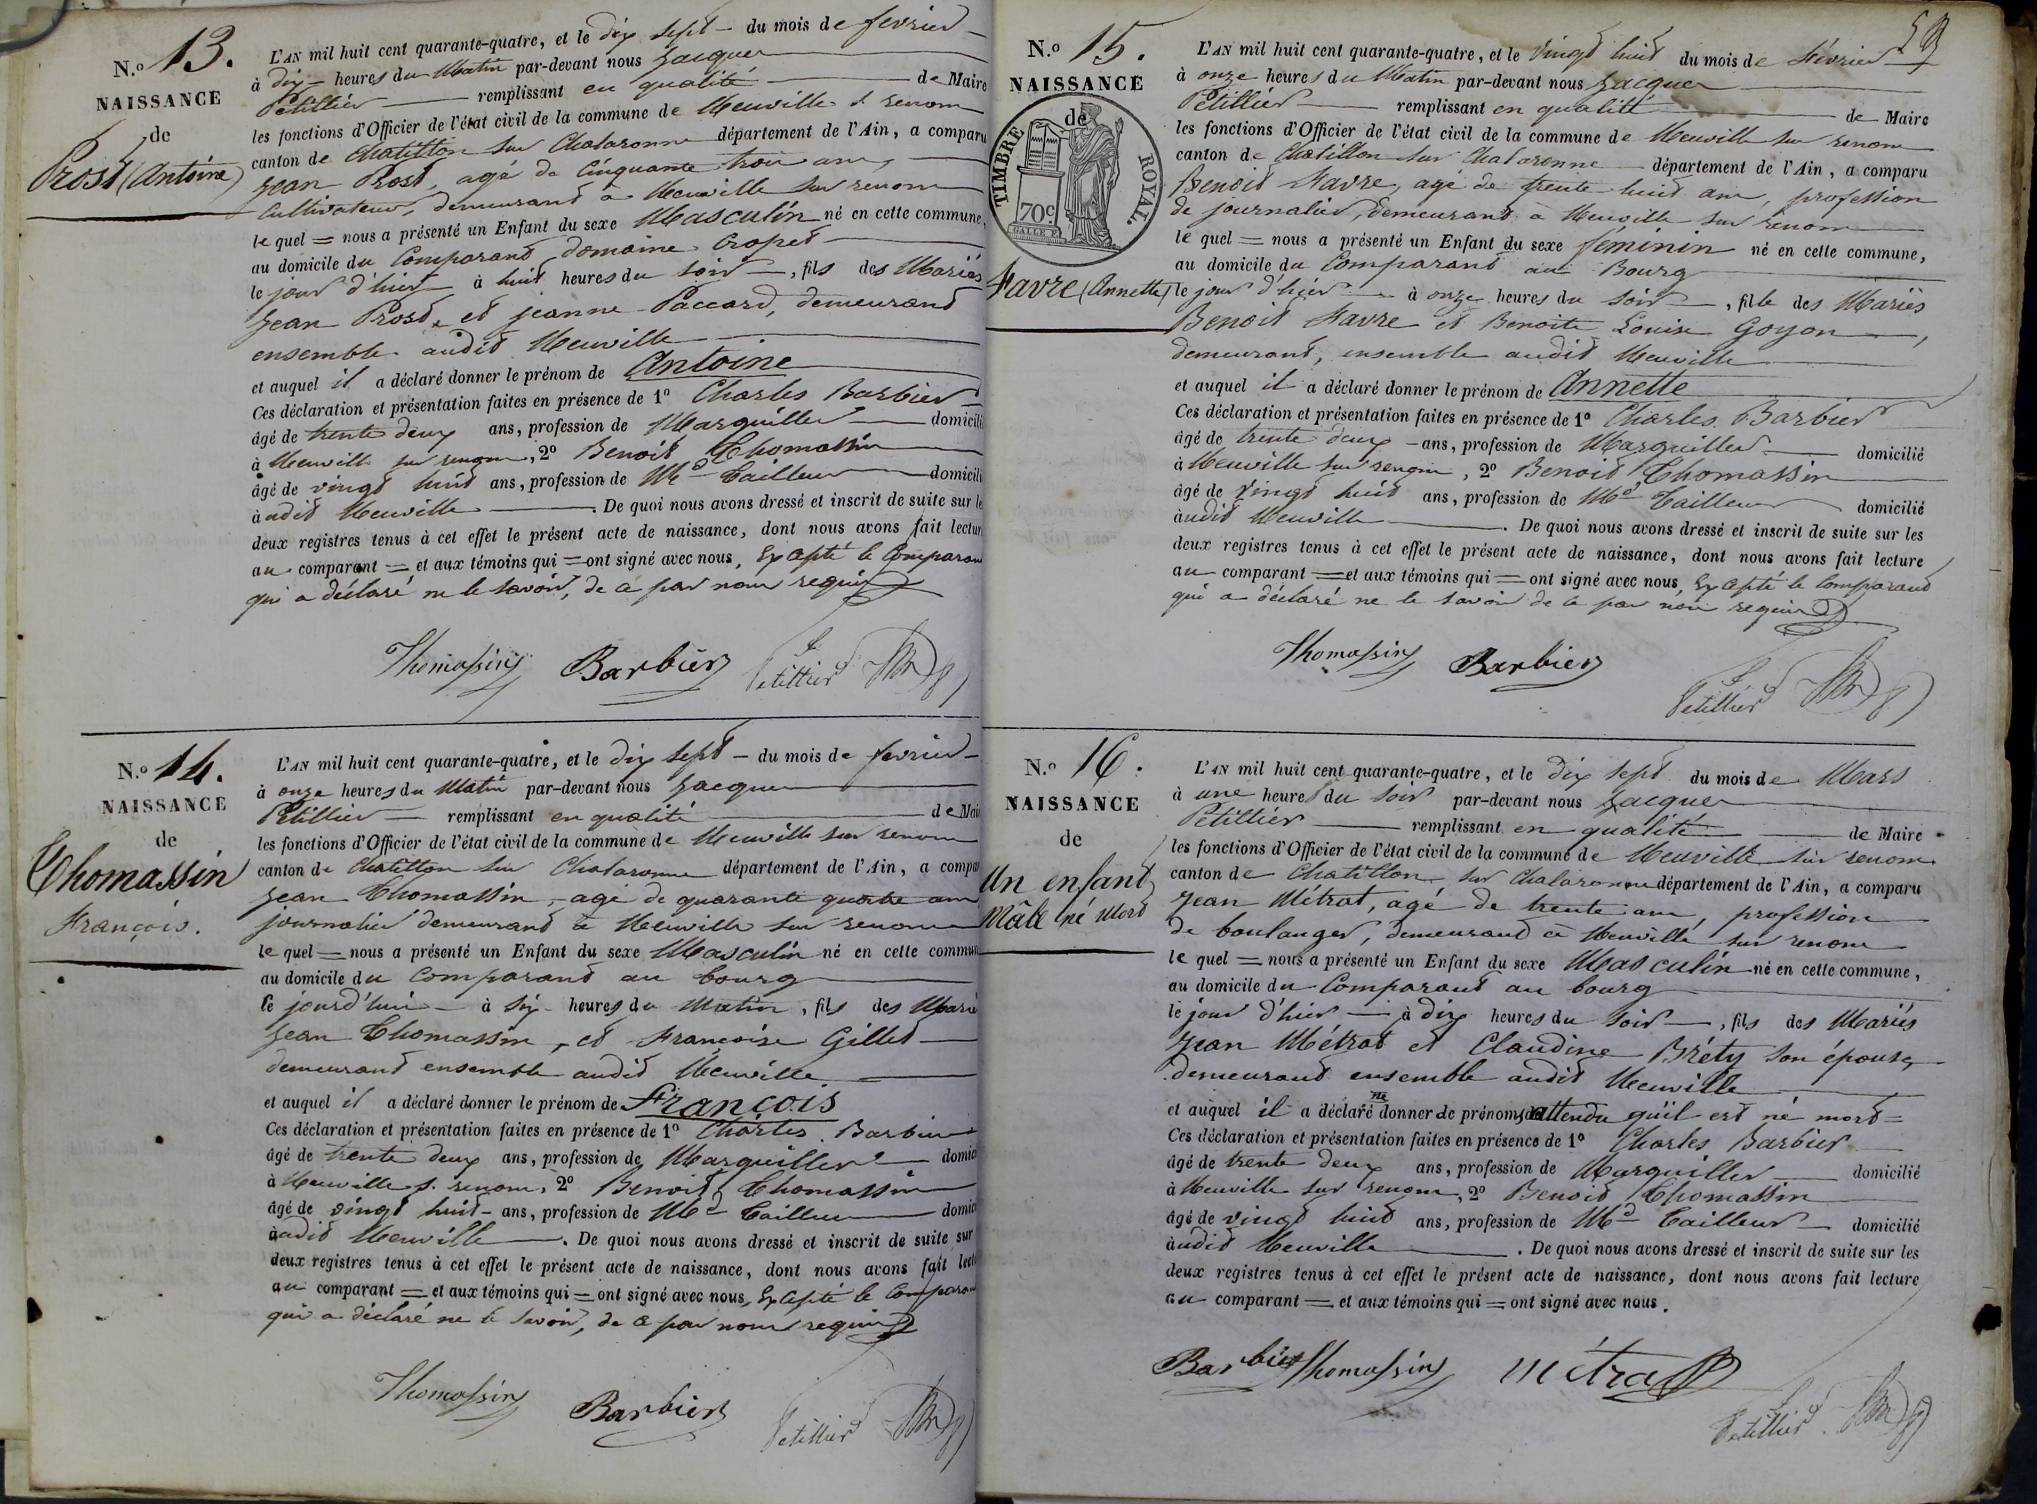 N.o 13.
NAISSANCE
de
Prost (Antoine)
L'AN mil huit cent quarante-quatre, et le dix sept du mois de fevrier
à dix heures du Matin par-devant nous Jacques
Petillier remplissant en qualité de Maire
les fonctions d'Officier de l'état civil de la commune de Neuville s. renom
canton de Chatillon sur Chalaronne département de l'Ain, a comparu
Jean Prost, agé de Cinquante trois ans,
Cultivateur, demeurant à Neuville sur renom
le quel = nous a présenté un Enfant du sexe Masculin né en cette commune,
au domicile du Comparant, domaine Cropet
le jour d'hier à huit heures du soir, fils des Mariés
Jean Prost, et jeanne Paccard, demeurant
ensemble audit Neuville
et auquel il a déclaré donner le prénom de Antoine
Ces déclaration et présentation faites en présence de 1º Charles Barbier
âgé de trente deux ans, profession de Marguiller domicili
à Neuville sur renom, 2º Benoit Thomassin
âgé de vingt huit ans, profession de Md Tailleur domicili
audit Neuville. De quoi nous avons dressé et inscrit de suite sur le
deux registres tenus à cet effet le présent acte de naissance, dont nous avons fait lectur
au comparant = et aux témoins qui = ont signé avec nous, Excepté le Comparant
qui a déclaré ne le savoir, de ce par nous requis
Thomassin Barbier Petillier
N.o 14.
NAISSANCE
de
Thomassin
François.
L'AN mil huit cent quarante-quatre, et le dix sept du mois de fevrier
à onze heures du Matin par-devant nous Jacques
Petillier remplissant en qualité de Mai
les fonctions d'Officier de l'état civil de la commune de Neuville sur renom
canton de Chatillon sur Chalaronne département de l'Ain, a compar
Jean Thomassin, agé de quarante quatre ans
journalier demeurant à Neuville sur renom
le quel = nous a présenté un Enfant du sexe Masculin né en cette commun
au domicile du Comparant au bourg
le jourd'hui à six heures du Matin, fils des Marié
Jean Thomassin, et Françoise Gillet
demeurant ensemble audit Neuville
et auquel il a déclaré donner le prénom de François
Ces déclaration et présentation faites en présence de 1º Charles Barbier
âgé de trente deux ans, profession de Marguiller domici
à Neuville s. renom, 2º Benoit Thomassin
âgé de vingt huit ans, profession de Md Tailleur domici
audit Neuville. De quoi nous avons dressé et inscrit de suite sur
deux registres tenus à cet effet le présent acte de naissance, dont nous avons fait lect
au comparant = et aux témoins qui = ont signé avec nous, Excepté le Comparant
qui a déclaré ne le savoir, de ce par nous requis
Thomassin Barbier Petillier
N.o 15.
NAISSANCE
de
TIMBRE ROYAL.
70c
Favre (Annette)
L'AN mil huit cent quarante-quatre, et le Vingt huit du mois de Février
à onze heures du Matin par-devant nous Jacques
Petillier remplissant en qualité de Maire
les fonctions d'Officier de l'état civil de la commune de Neuville sur renom
canton de Chatillon sur Chalaronne département de l'Ain, a comparu
Benoit Favre, agé de trente huit ans, profession
de journalier, demeurant à Neuville sur renom
le quel = nous a présenté un Enfant du sexe féminin né en cette commune,
au domicile du Comparant au Bourg
le jour d'hier à onze heures du soir, fille des Mariés
Benoit Favre et Benoite Louise Goyon,
demeurant, ensemble audit Neuville
et auquel il a déclaré donner le prénom de Annette
Ces déclaration et présentation faites en présence de 1º Charles Barbier
âgé de trente deux ans, profession de Marguiller domicilié
à Neuville sur renom, 2º Benoit Thomassin
âgé de Vingt huit ans, profession de Md Tailleur domicilié
audit Neuville. De quoi nous avons dressé et inscrit de suite sur les
deux registres tenus à cet effet le présent acte de naissance, dont nous avons fait lecture
au comparant = et aux témoins qui = ont signé avec nous, Excepté le Comparant
qui a déclaré ne le savoir de ce par nous requis
Thomassin Barbier
Petillier
N.o 16.
NAISSANCE
de
Un enfant
Mâle né Mort
L'AN mil huit cent quarante-quatre, et le dix sept du mois de Mars
à une heures du soir par-devant nous Jacques
Petillier remplissant en qualité de Maire
les fonctions d'Officier de l'état civil de la commune de Neuville sur renom
canton de Chatillon sur Chalaronne département de l'Ain, a comparu
Jean Métrat, agé de trente ans, profession
de boulanger, demeurant à Neuville sur renom
le quel = nous a présenté un Enfant du sexe Masculin né en cette commune,
au domicile du Comparant au bourg
le jour d'hier à dix heures du soir, fils des Mariés
Jean Métrat et Claudine Bréty son épouse,
demeurant ensemble audit Neuville
et auquel il a déclaré ne donner de prénoms attendu qu'il est né mort =
Ces déclaration et présentation faites en présence de 1º Charles Barbier
âgé de trente deux ans, profession de Marguiller domicilié
à Neuville sur renom, 2º Benoit Thomassin
âgé de vingt huit ans, profession de Md Tailleur domicilié
audit Neuville. De quoi nous avons dressé et inscrit de suite sur les
deux registres tenus à cet effet le présent acte de naissance, dont nous avons fait lecture
au comparant = et aux témoins qui = ont signé avec nous.
Barbier Thomassin Métrat
Petillier